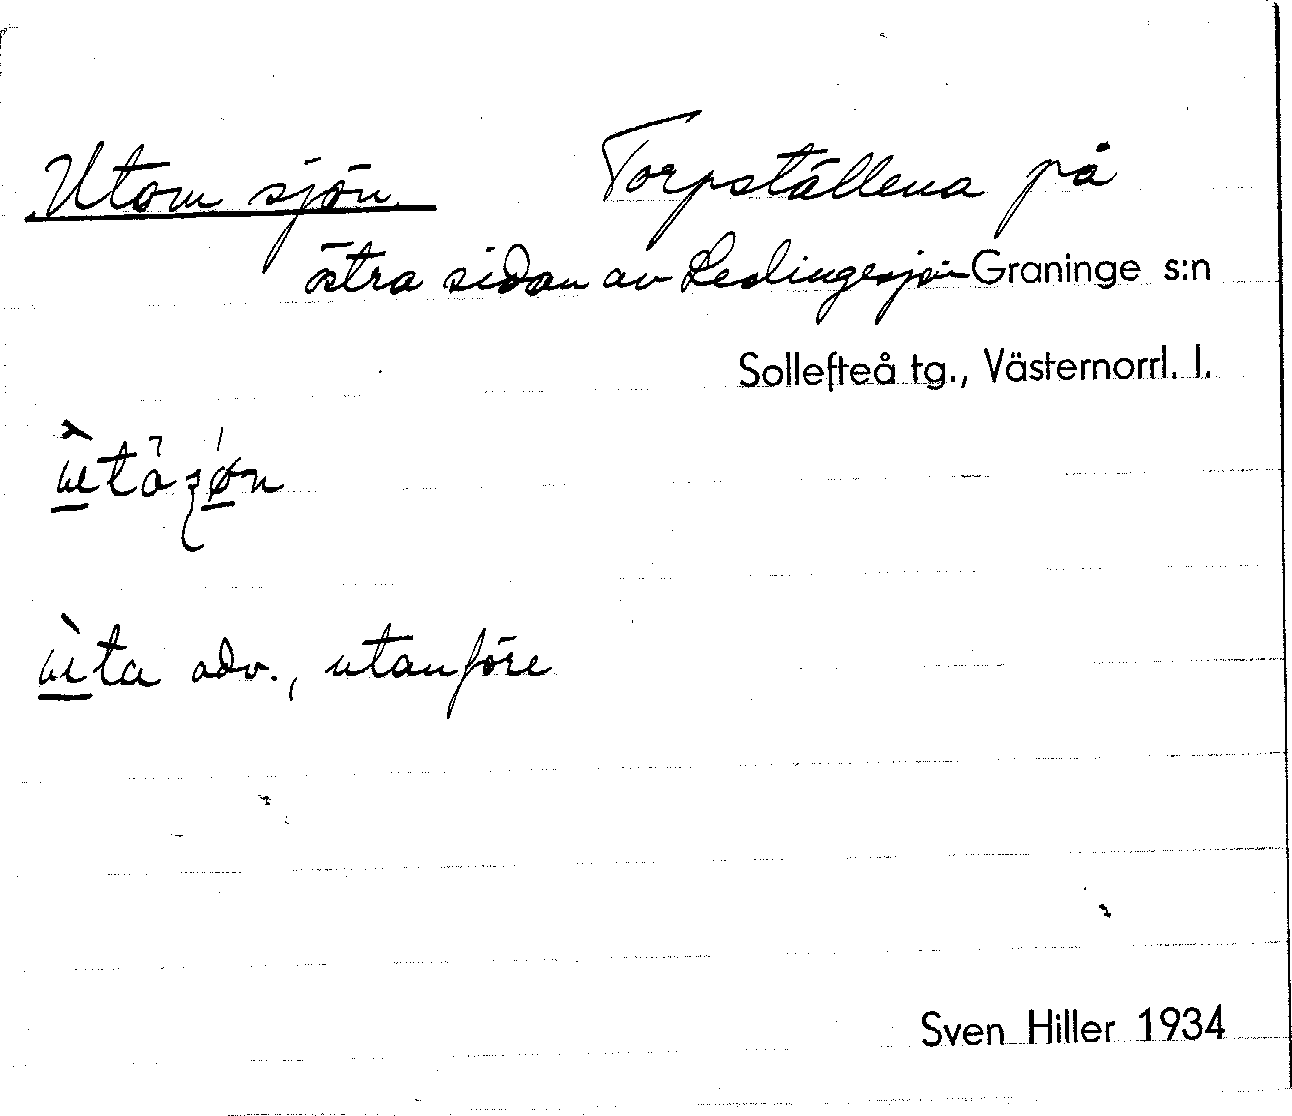 Utom sjön Torpställena på
östra sidan av Ledingesjön Graninge s:n
Sollefteå tg., Västernorrl. l.
ùta adv., utanföre
Sven Hiller 1934